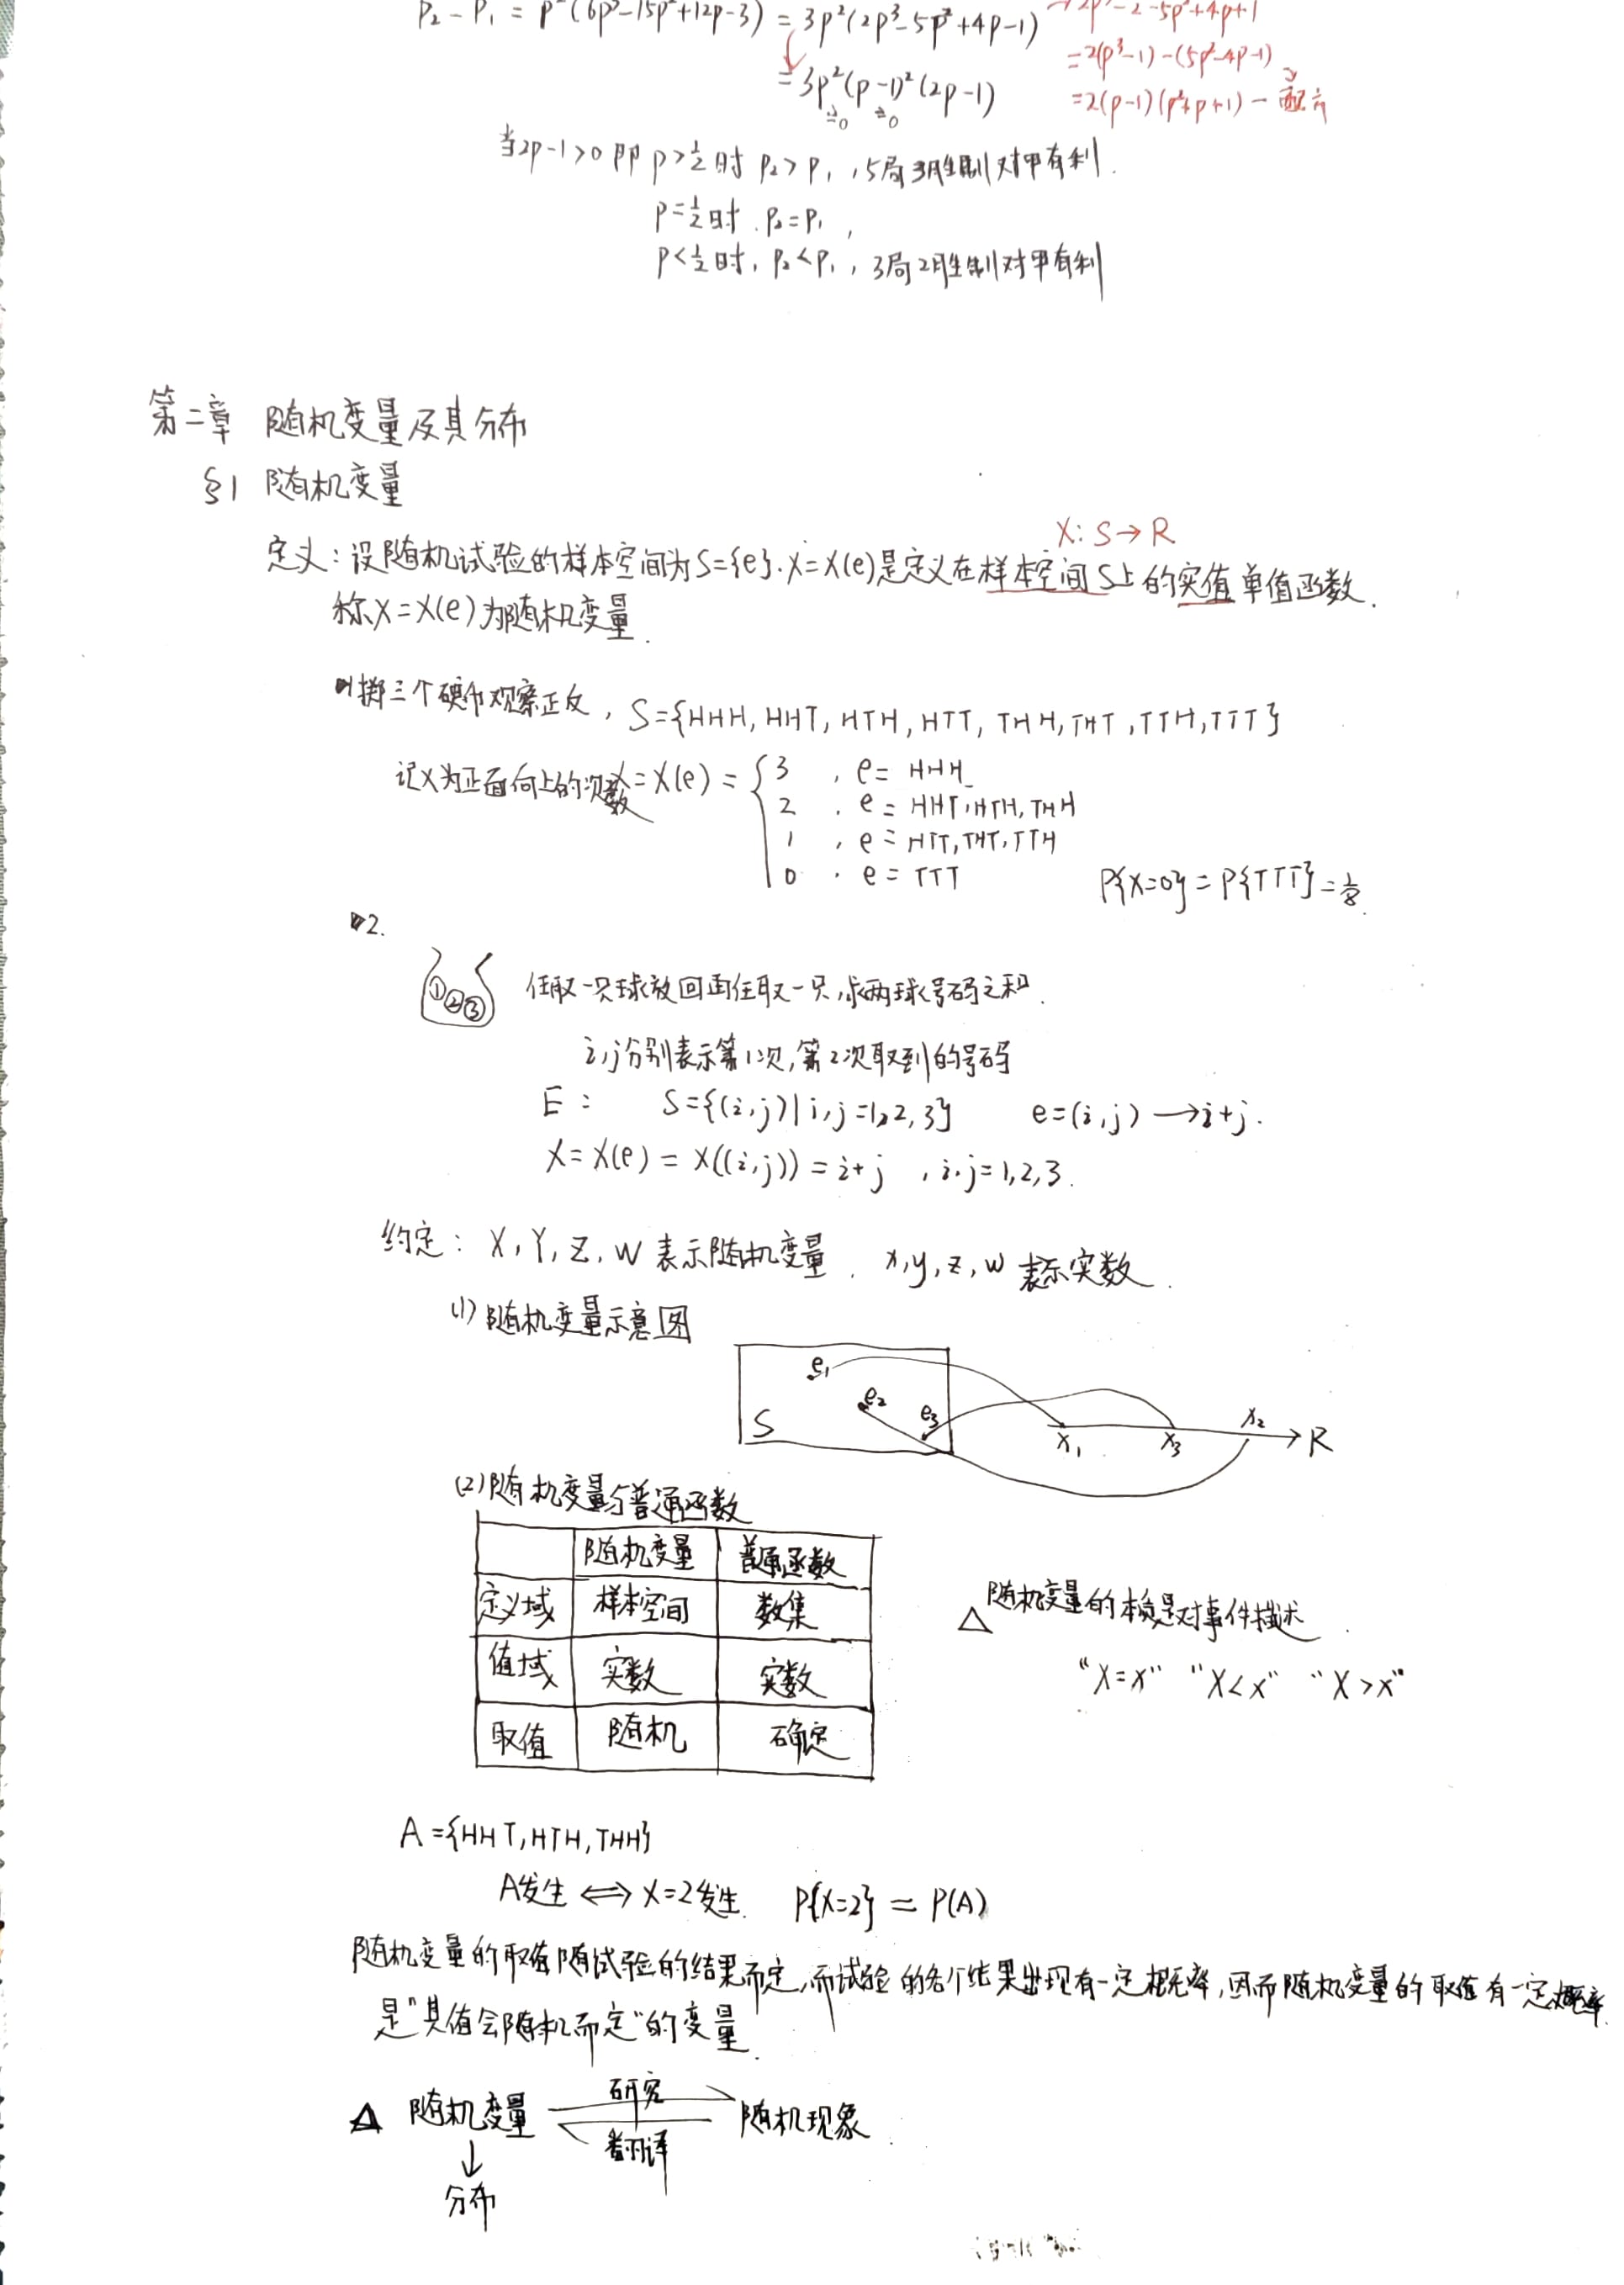 P₂ - P₁ = p²(6p³-15p²+12p-3) = 3p²(2p³-5p²+4p-1) → 2p³-2-5p²+4p+1
= 3p²(p-1)²(2p-1)
≥0 ≥0
=2(p³-1)-(5p²-4p-1)
=2(p-1)(p²+p+1)-
当2p-1>0 即 p>½时 P₂>P₁,5局3胜制对甲有利.
p=½时. P₂=P₁,
p<½时, P₂<P₁, 3局2胜制对甲有利
第二章 随机变量及其分布
§1 随机变量
X: S→R
定义:设随机试验的样本空间为S={e}. X=X(e)是定义在样本空间S上的实值单值函数.
称X=X(e)为随机变量.
掷三个硬币观察正反, S={HHH, HHT, HTH, HTT, THH, THT, TTH, TTT}
记X为正面向上的次数 X=X(e) = { 3 , e= HHH
2 , e= HHT, HTH, THH
1 , e= HTT, THT, TTH
0 , e= TTT P{X=0}=P{TTT}=⅛.
2.
① ② ③ 任取一只球放回再任取一只,求两球号码之和.
i,j分别表示第1次,第2次取到的号码
E: S={(i,j)|i,j=1,2,3} e=(i,j) →i+j.
X=X(e)=X((i,j))=i+j , i,j=1,2,3.
约定: X, Y, Z, W 表示随机变量. x,y,z,w 表示实数.
(1)随机变量示意图
S e₁ e₂ e₃ x₁ x₃ x₂ R
(2)随机变量与普通函数
随机变量 普通函数
定义域 样本空间 数集
值域 实数 实数
取值 随机 确定
△ 随机变量的本质是对事件描述.
"X=x" "X<x" "X>x"
A={HHT,HTH,THH}
A发生 ⇔ X=2发生. P{X=2} = P(A)
随机变量的取值随试验的结果而定,而试验的各个结果出现有一定概率,因而随机变量的取值有一定概率.
是"其值会随机而定"的变量.
△ 随机变量 研究 翻译 随机现象
↓
分布